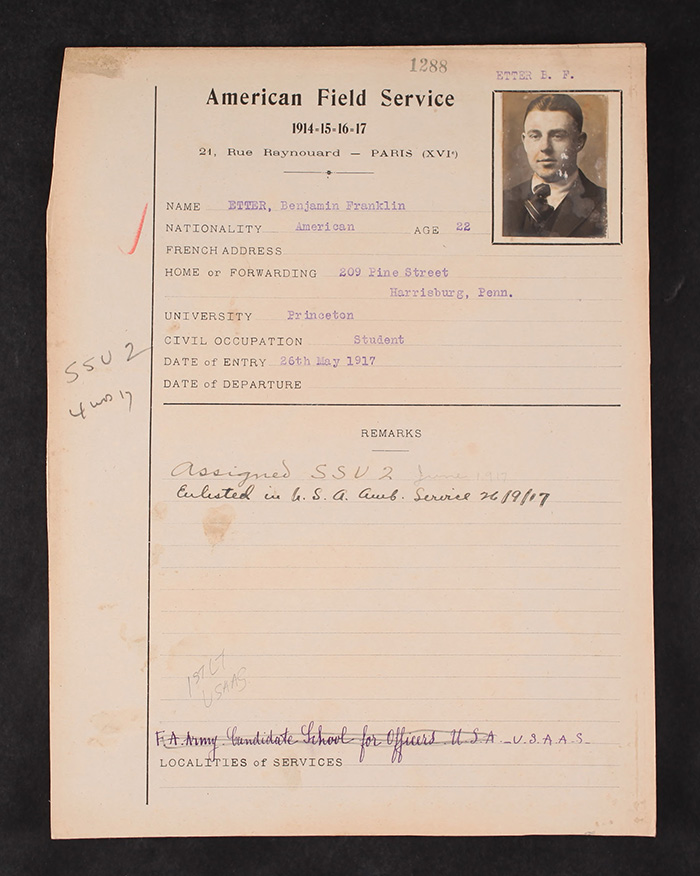 1288
ETTER B. F.
American Field Service
1914=15=16=17
21, Rue Raynouard — PARIS (XVIe)
NAME ETTER, Benjamin Franklin
NATIONALITY American AGE 22
FRENCH ADDRESS
HOME or FORWARDING 209 Pine Street
Harrisburg, Penn.
UNIVERSITY Princeton
CIVIL OCCUPATION Student
DATE of ENTRY 26th May 1917
DATE of DEPARTURE
SSU 2
4 mo 17
REMARKS
Assigned SSU 2 June 1917
Enlisted in U. S. A. Amb. Service 26/9/17
1ST LT
USAAS
F.A. Army Candidate School for Officers U.S.A. U.S.A.A.S
LOCALITIES of SERVICES